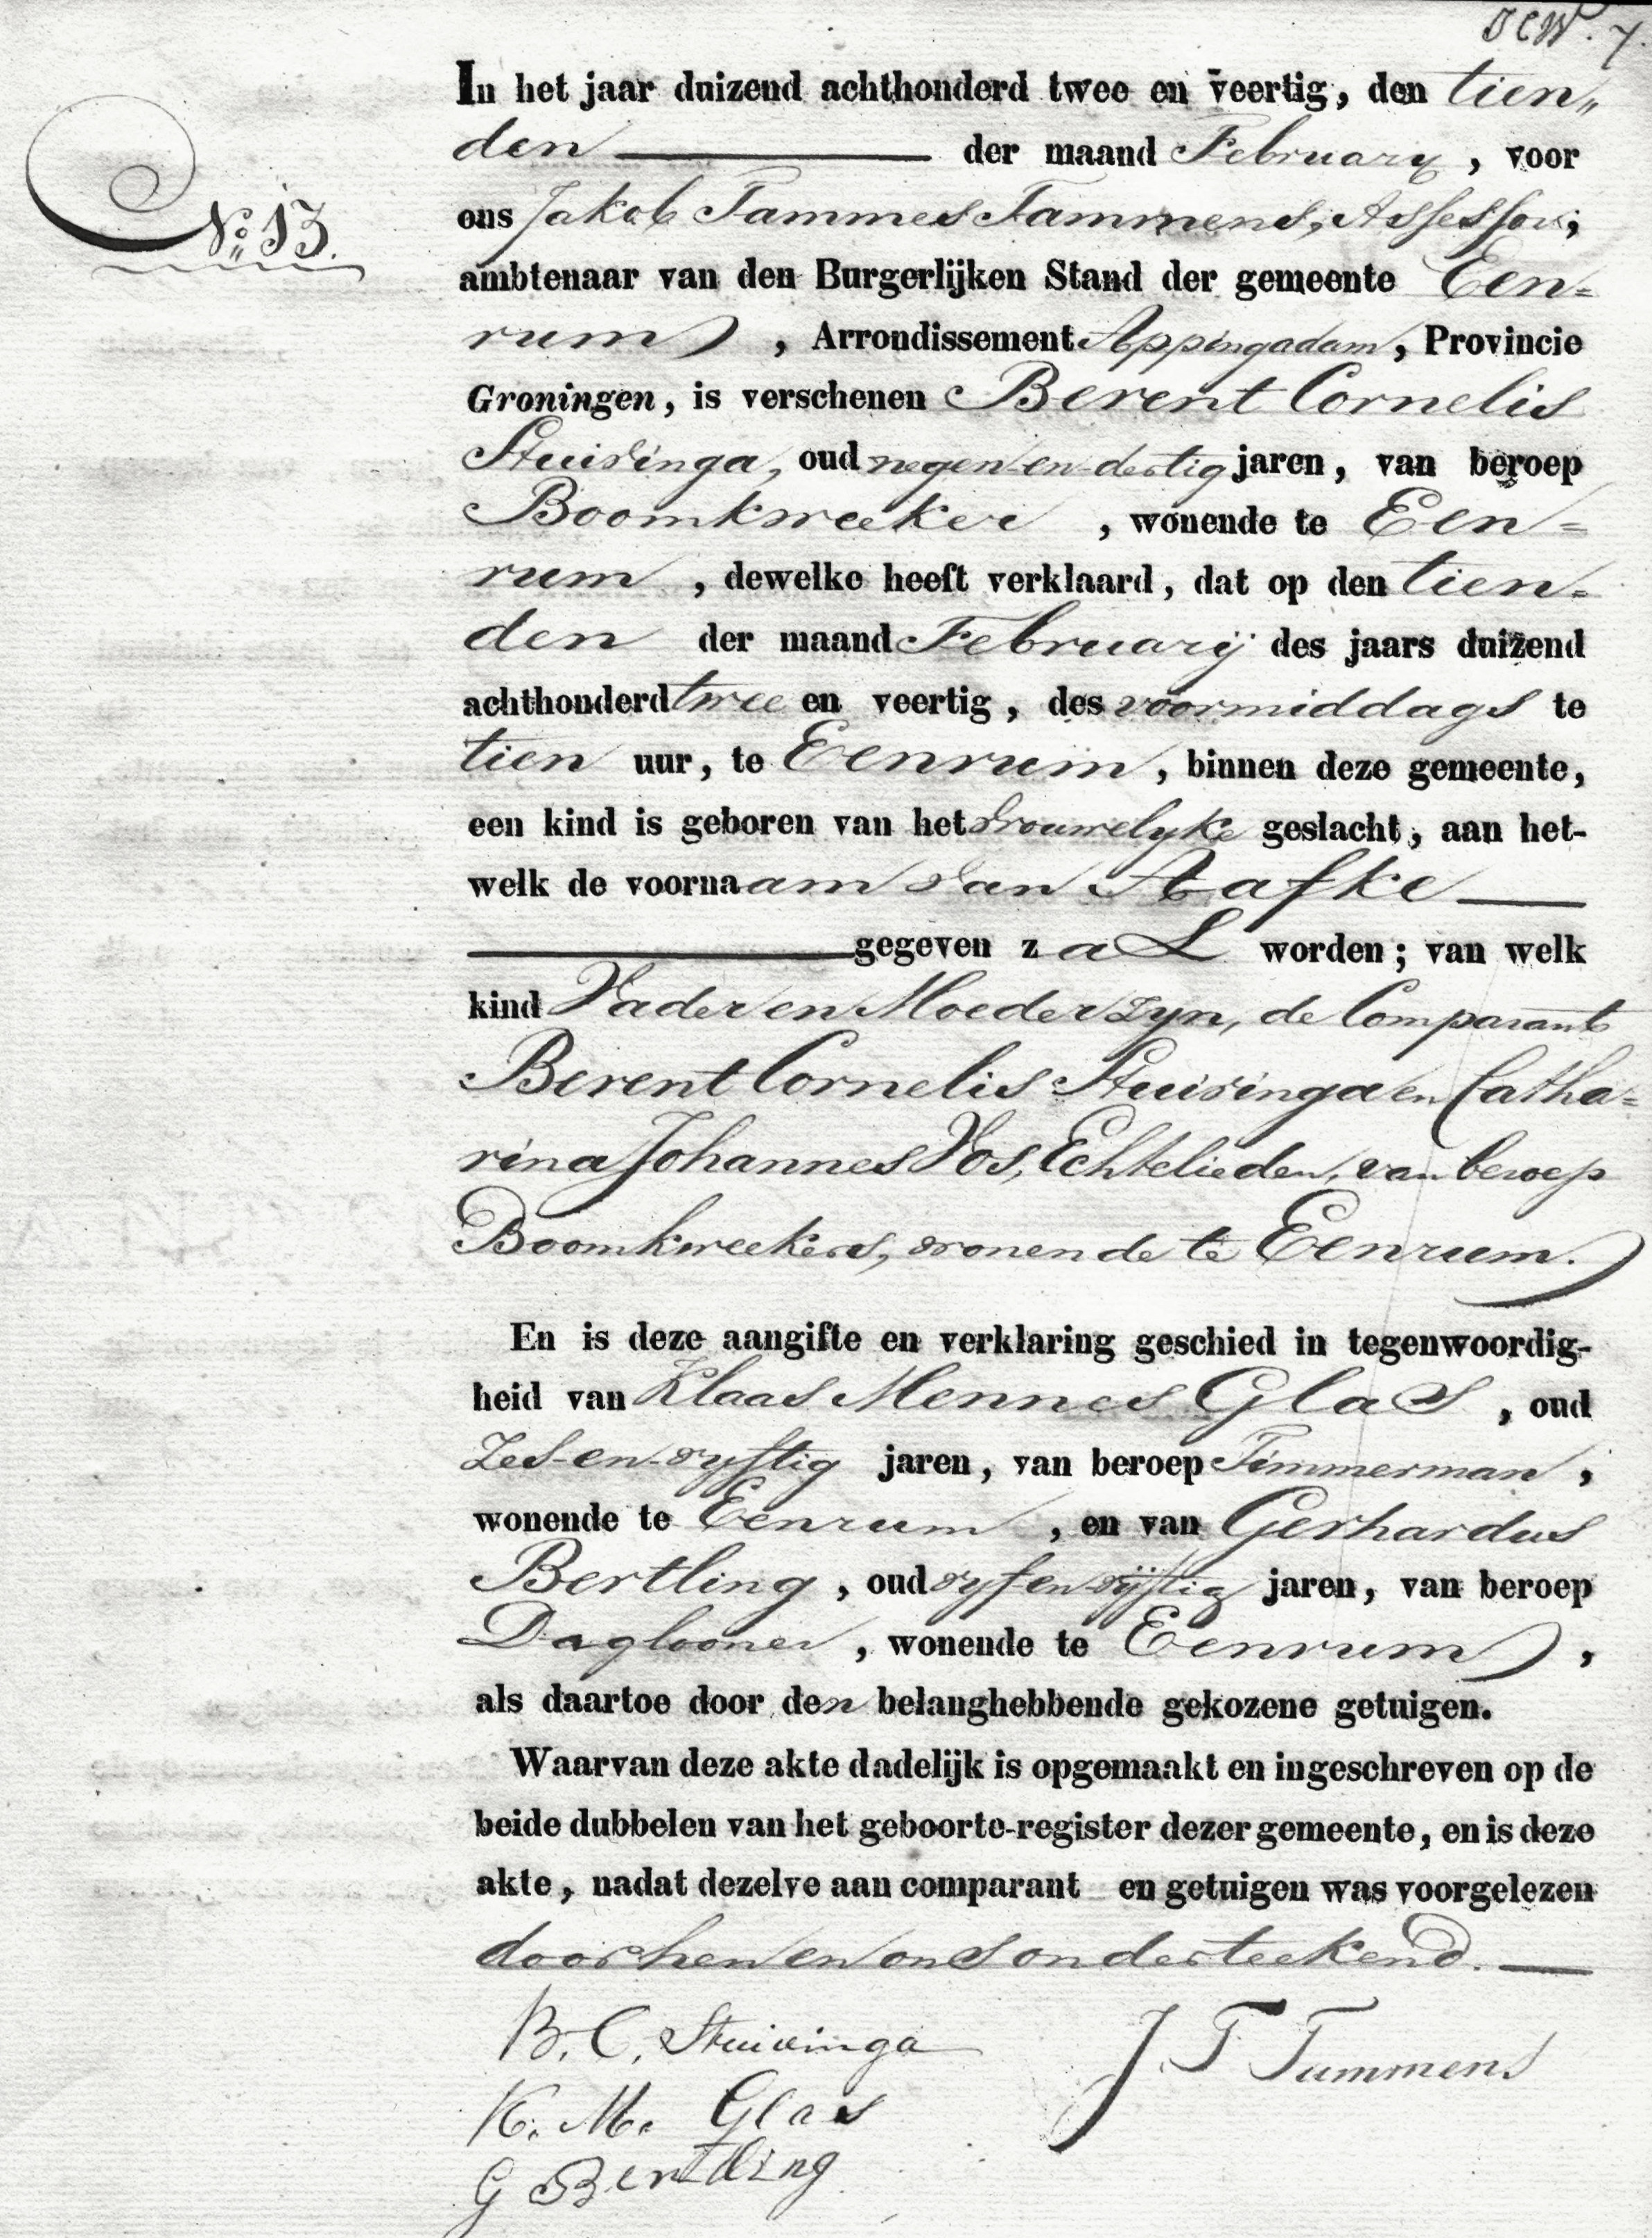 In het jaar duizend achthonderd twee en veertig, den tien„
den der maand February, voor
No 13.
ons Jakob Tammes Tammens, Assessor,
ambtenaar van den Burgerlijken Stand der gemeente Een=
rum, Arrondissement Appingadam, Provincie
Groningen, is verschenen Berent Cornelis
Stuivinga, oud negen-en-dertig jaren, van beroep
Boomkweeker, wonende te Een=
rum, dewelke heeft verklaard, dat op den tien=
den der maand February des jaars duizend
achthonderd twee en veertig, des voormiddags te
tien uur, te Eenrum, binnen deze gemeente,
een kind is geboren van het vrouwelyke geslacht, aan het-
welk de voornaam van Aafke
gegeven zal worden; van welk
kind Vader en Moeder zyn, de Comparant
Berent Cornelis Stuivinga en Catha=
rina Johannes Vos, Echtelieden, van beroep
Boomkweekers, wonende te Eenrum.
En is deze aangifte en verklaring geschied in tegenwoordig-
heid van Klaas Mennes Glas, oud
Zes-en-vyftig jaren, van beroep Timmerman,
wonende te Eenrum, en van Gerhardus
Bertling, oud vyf-en-vijftig jaren, van beroep
Daglooner, wonende te Eenrum,
als daartoe door den belanghebbende gekozene getuigen.
Waarvan deze akte dadelijk is opgemaakt en ingeschreven op de
beide dubbelen van het geboorte-register dezer gemeente, en is deze
akte, nadat dezelve aan comparant en getuigen was voorgelezen
door hen en ons onderteekend.
B. C. Stuivinga
J. T Tammens
K. M. Glas
G Bertling